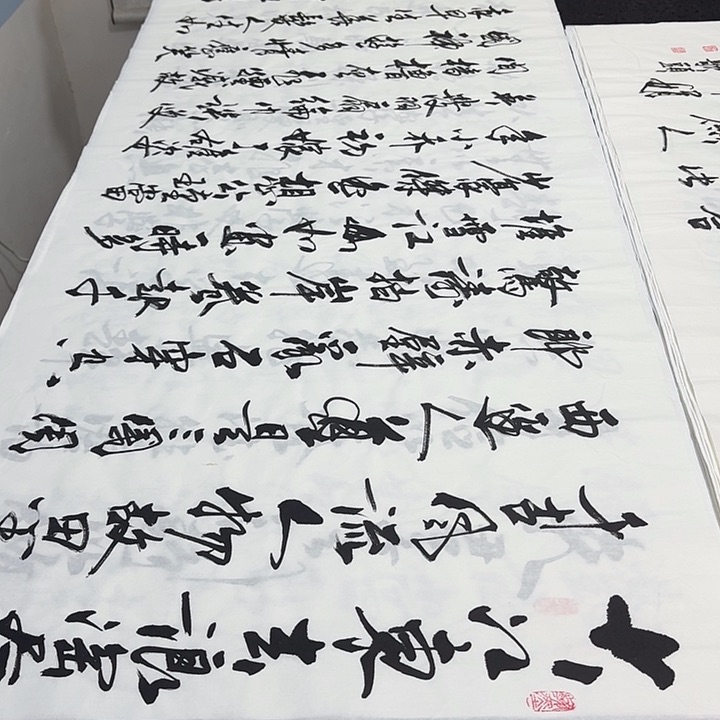 大江東去浪淘
千古風流人物故壘
西邊人道是三國周
郎赤壁亂石穿空
驚濤拍岸卷起千
堆雪江山如畫一時多
少豪傑遙想公瑾當
年小喬初嫁了雄姿
英發羽扇綸巾談笑
間檣櫓灰飛煙滅故
國神遊多情應笑
我早生華髮人生如